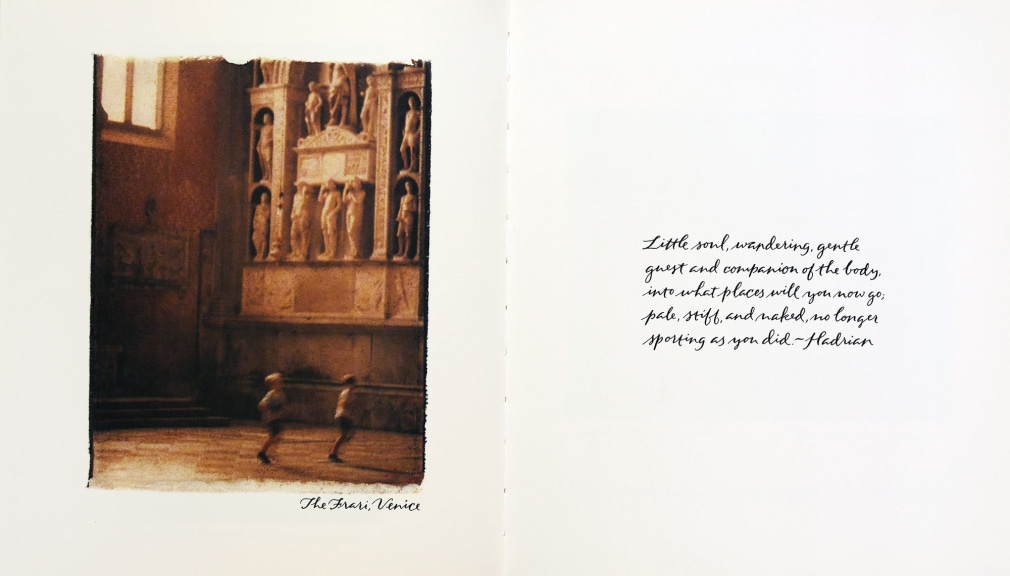 The Frari, Venice
Little soul, wandering, gentle
guest and companion of the body,
into what places will you now go;
pale, stiff, and naked, no longer
sporting as you did.~Hadrian